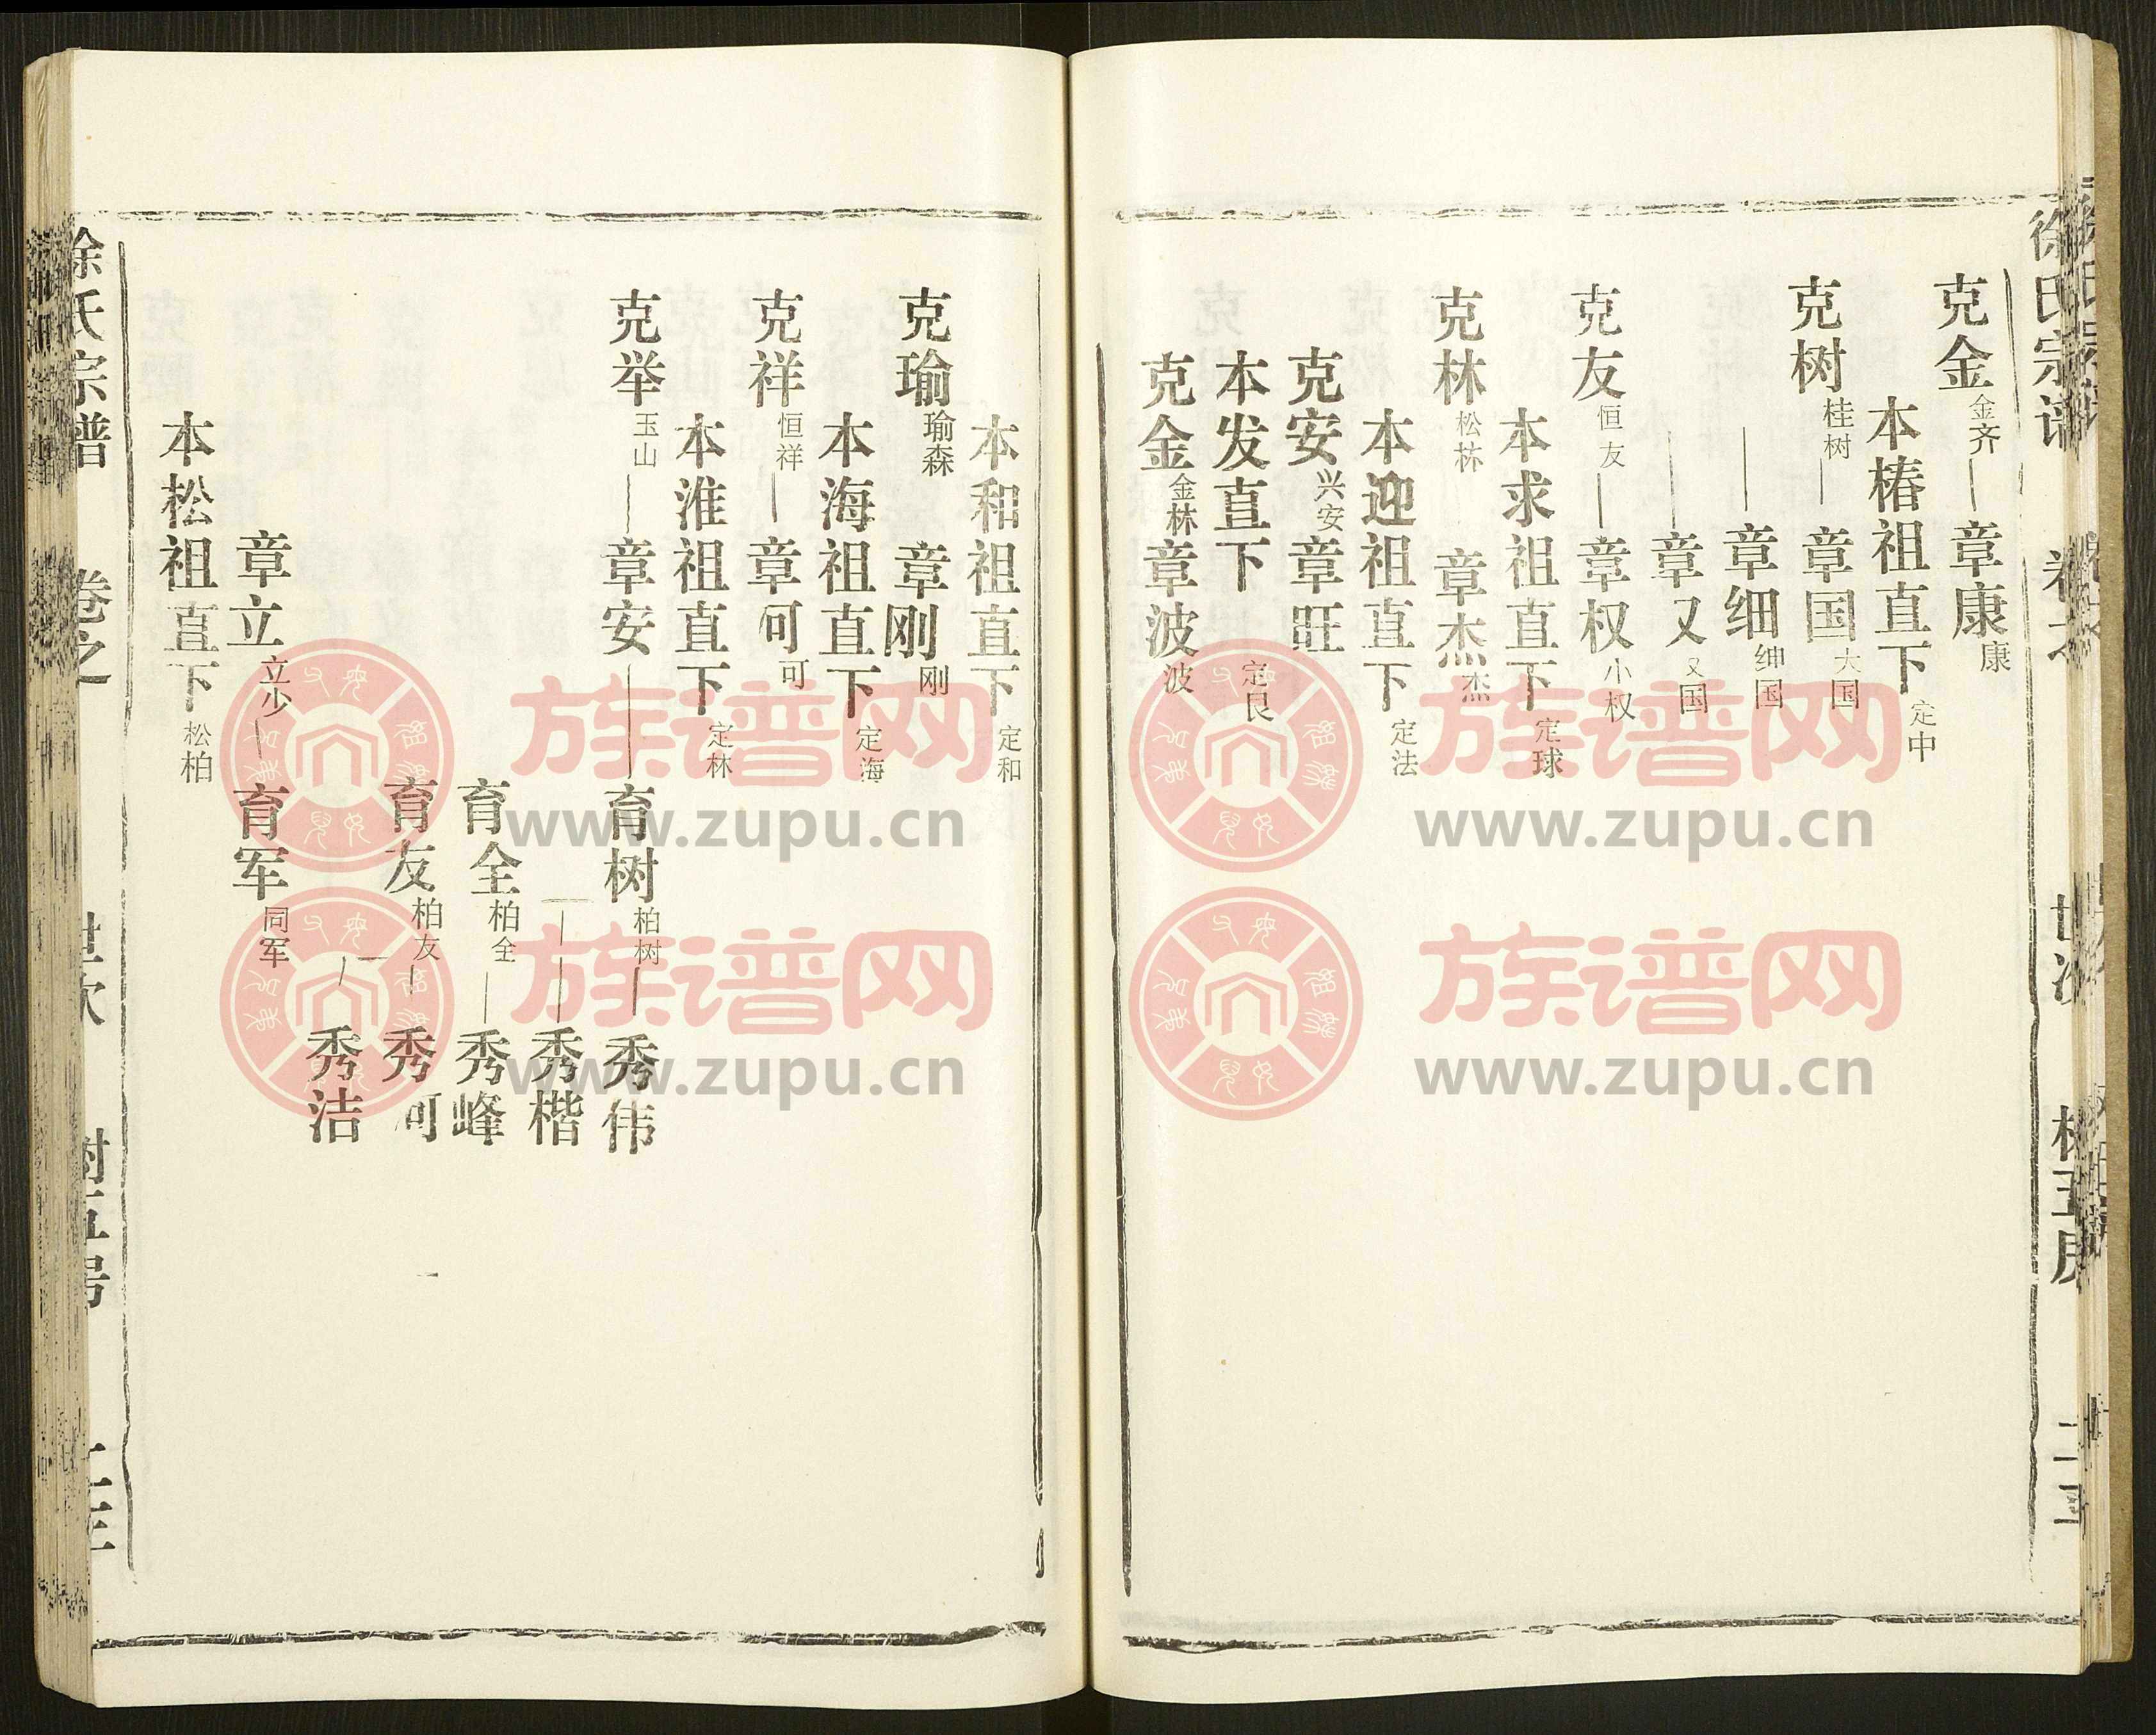 徐氏宗谱
克金 金齐 章康 康
本椿祖直下 定中
克树 桂树 章国 大国
章细 绅国
章又 又国
克友 恒友 章权 小权
本求祖直下 定球
克林 松林 章杰 杰
本迎祖直下 定法
克安 兴安 章旺
本发直下 定艮
克金 金林 章波 波
本和祖直下 定和
克瑜 瑜森 章刚 刚
本海祖直下 定海
克祥 恒祥 章可 可
本淮祖直下 定林
克举 玉山 章安 育树 柏树 秀伟
秀楷
育全 柏全 秀峰
育友 柏友 秀河
秀洁
章立 立少 育军 同军
本松祖直下 松柏
徐氏宗谱 卷之 世次
族谱网
www.zupu.cn
族谱网
www.zupu.cn
族谱网
www.zupu.cn
族谱网
www.zupu.cn